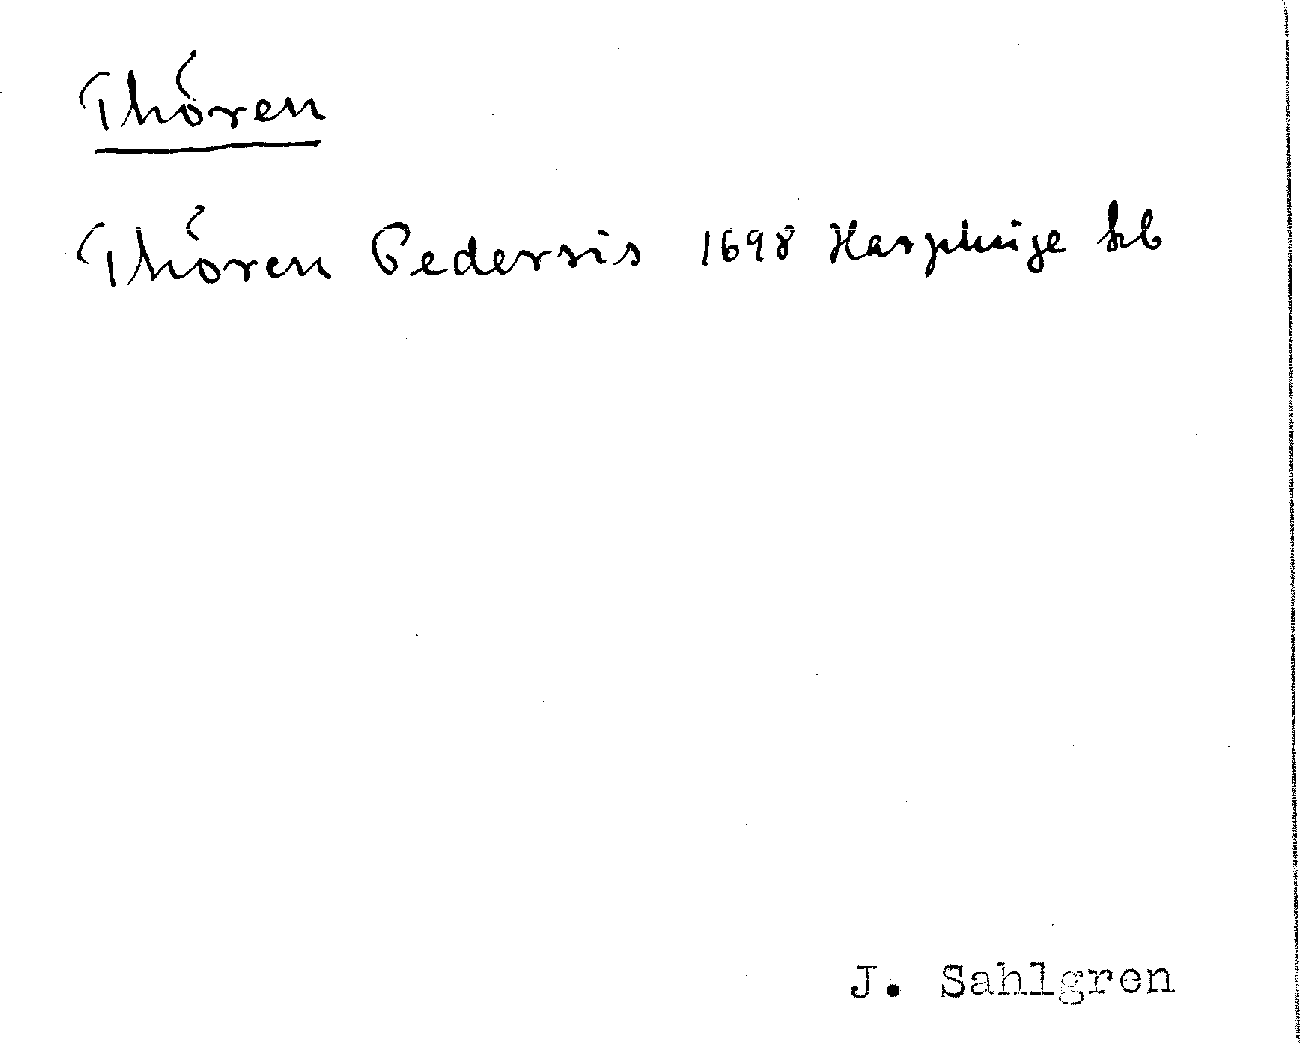 Thóren
Thóren Pedersis 1698 Harplinge kb
J. Sahlgren